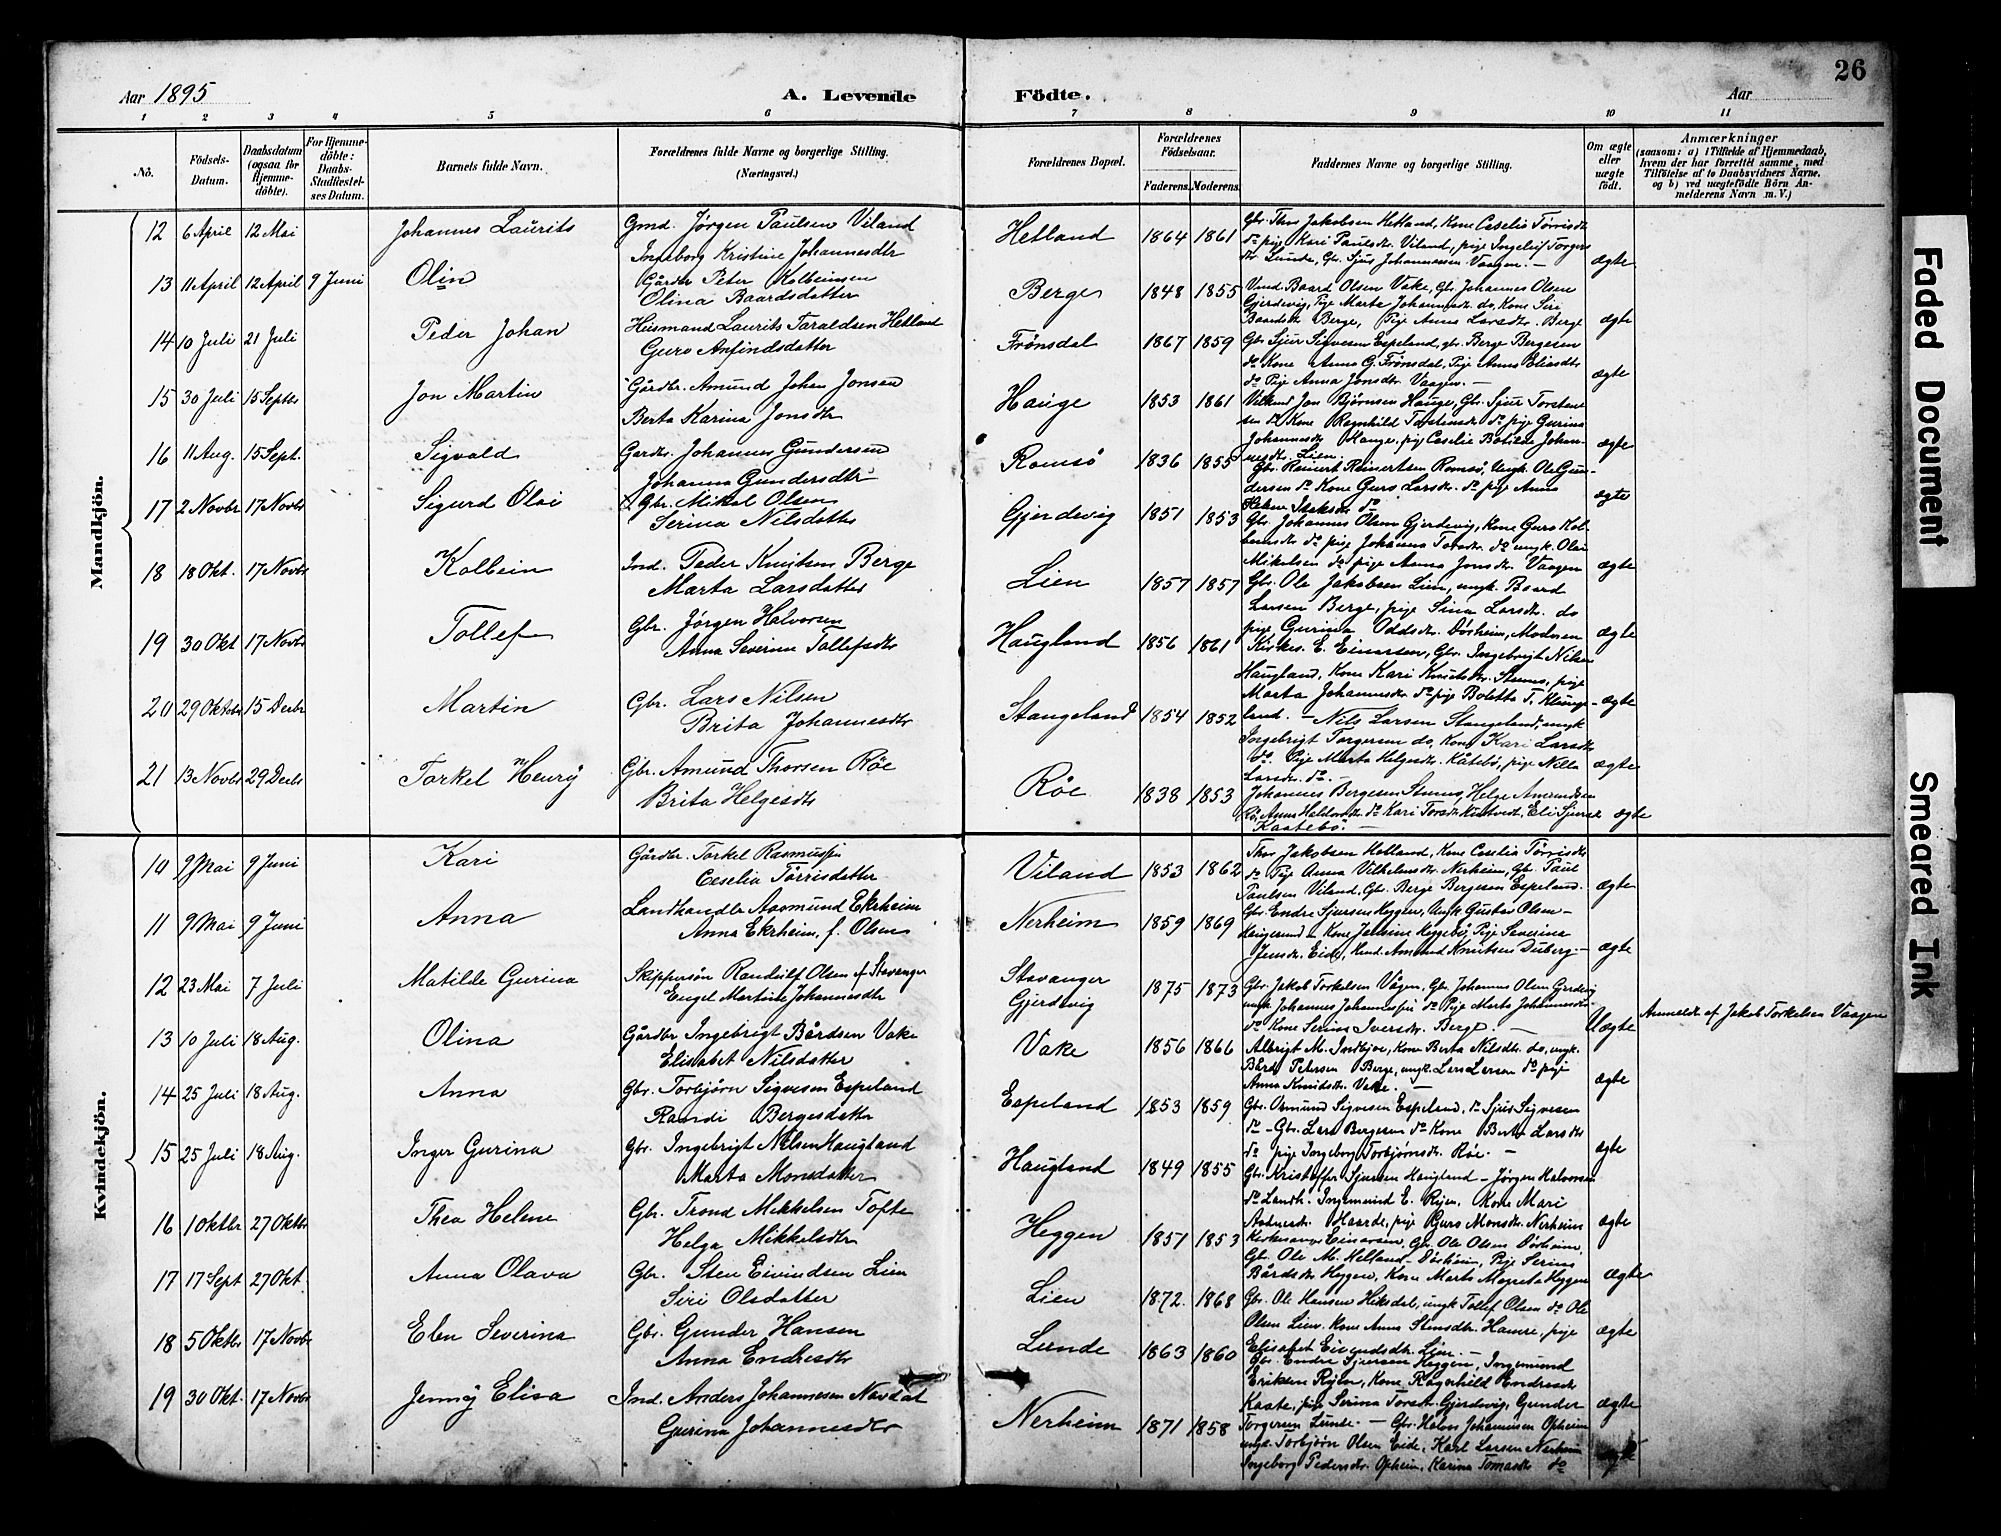 26
Aar 1895
A. Levende
Födte.
Aar
1 2 3 4 5 6 7 8 9 10 11
No.
Födsels-Datum.
Daabsdatum (ogsaa for Hjemme-döbte).
For Hjemme-döbte: Daabs-Stadfæstel-ses Datum.
Barnets fulde Navn.
Forældrenes fulde Navne og borgerlige Stilling.
(Næringsvei.)
Forældrenes Bopæl.
Forældrenes Födselsaar.
Faderens. Moderens.
Faddernes Navne og borgerlige Stilling.
Om ægte eller uægte födt.
Anmærkninger
(saasom: a) i Tilfælde af Hjemmedaab,
hvem der har forrettet samme, med
Tilföielse af to Daabsvidners Navne.
og b) ved uægtefödte Börn An-
melderens Navn m. V.)
Mandkjön.
12 6 April 12 Mai Johannes Laurits Gmd. Jørgen Paulsen Viland
Ingeborg Kristine Johannesdtr
Hetland 1864 1861 Gbr. Thor Jakobsen Hetland, Kone Caselia Torrisdtr
do pige Kari Paulsdtr. Viland, pige Ingeleif Torgers
dtr. Lunde, Gbr. Sjus Johannessen Vaagen. — ægte
13 11 April 12 April 9 Juni Olin Gårdbr Peter Kolbeinsen
Olina Baardsdatter
Berge 1848 1855 Baard Olsen Vake, Gbr. Johannes Olsen
Gjerdevig, Pige Marta Johannesdtr. do, Kone Siri
Baardsdtr Berge, Pige Anna Larsdtr. Berge ægte
14 10 Juli 21 Juli Peder Johan Husmand Laurits Taraldsen Hetland
Guro Anfindsdatter
Frönsdal 1867 1859 Gbr Sjur Sigvesen Espeland, gbr. Berge Bergesen
do Kone Anna G. Frönsdal, Pige Anna Eliasdtr
do Pige Anna Jonsdtr. Vaagen. — ægte
15 30 Juli 15 Septbr Jon Martin Gårdbr. Amund Johan Jonsen
Berta Karina Jonsdtr
Hauge 1853 1861 Jon Bjørnsen Hauge, Gbr. Sjur Torsten
sen do Kone Ragnhild Torstensdtr. do pige Gurina
Johannesdtr Hauge, pig Caselia Botilde Johan-
nesdtr. Lien. ægte
16 11 Aug. 15 Sept. Sigvald Gardbr. Johannes Gundersen
Johanna Gundersdtr
Romsö 1836 1855 Gbr. Reinert Reinertsen Romsö, Ungk. Ole Gun-
dersen do Kone Guro Larsdtr. do pige Anna
Helene Isaksdtr. do ægte
17 2 Novbr 17 Novbr Sigurd Olai Gbr. Mikal Olsen
Serina Nilsdatter
Gjerdevig 1851 1853 Gbr. Johannes Olsen Gjerdevig, Kone Guro Kol-
beinsdtr do pige Johanna Torsdtr. do ungk. Olai
Mikalsen do pige Anna Jonsdtr. Vaagen ægte
18 18 Okt. 17 Novbr Kolbein Ind. Peder Knutsen Berge
Marta Larsdatter
Lien 1857 1857 Gbr. Ole Jakobsen Lien, ungk. Baard
Larsen Berge, pige Sina Larsdtr. do
pige Gurina Oddsdtr. Dösheim, Moderen ægte
19 30 Okt 17 Novbr Tollef Gbr. Jørgen Halvorsen
Anna Severine Tollefsdtr
Haugland 1856 1861 Kirkes. E. Einarsen, Gbr. Ingebrigt Nilsen
Haugland, Kone Kari Knutsdtr. Stumo, pige
Marta Johannesdtr. do pige Boletta T. Klunge-
land. — ægte
20 29 Oktobr 15 Decbr Martin Gbr. Lars Nilsen
Brita Johannesdtr
Stangeland 1854 1852 Nils Larsen Stangeland, ungk
Ingebrigt Torgersen do, Kone Kari Larsdtr
do. Pige Marta Helgesdtr. Kåtebö, pige Nilla
Larsdtr. do. — ægte
21 13 Novbr 29 Decbr Torkel Henry Gbr. Amund Thorsen Röe
Brita Helgesdtr
Röe 1838 1853 Johannes Bergesen Stumo, Helge Amundsen
Rö, Anna Haldorsdtr. do Kari Torsdtr. , Eli Sjursdtr
Kaatebö. — ægte
Kvindekjön.
10 9 Mai 9 Juni Kari Gårdbr. Torkel Rasmussen
Ceselia Törrisdatter
Viland 1853 1862 Thor Jakobsen Hetland, Kone Ceselia Törrisdtr
do Pige Anna Vilhelmsdtr. Nerheim, Gbr. Paul
Paulsen Viland, Gbr. Berge Bergesen Espeland. ægte
11 9 Mai 9 Juni Anna Landhandler Aasmund Ekrheim
Anna Ekrheim, f. Olsen
Nerheim 1859 1869 Gbr. Endre Sjursen Heggen, Ungk Gustav Olsen
Haugesund — Kone Jakobine Heggebö, Pige Severina
Jensdtr. Eide, Amund Knutsen Duberg. — ægte
12 23 Mai 7 Juli Matilde Gurina Skippersön Randulf Olsen af Stavanger
Engel Martine Johannesdtr
Stavanger
Gjerdevig 1875 1873 Gbr. Jakob Torkelsen Vågen, Gbr. Johannes Olsen Gjerdevig
ungk. Johannes Johannessen do Pige Marta Johannesdtr
do Kone Serina Iversdtr. Berge. — Uægte Anmeldt af Jakob Torkelsen Vaagen
13 10 Juli 18 Aug. Olina Gårdbr Ingebrigt Bårdsen Vake
Elisabet Nilsdatter
Vake 1856 1866 Albrigt M. Indbjoe, Kone Berta Nilsdtr. do, ungk.
Bård Petersen Berge, ungk. Lars Larsen do pige
Anna Knudsdtr. Vake. — ægte
14 25 Juli 18 Aug. Anna Gbr. Torbjörn Sigvesen Espeland
Randi Bergesdatter
Espeland 1853 1859 Gbr. Osmund Sigvesen Espeland, do Sjur Sigvesen
do — Gbr. Lars Bergesen do Kone Berta Larsdtr
do pige Ingeborg Torbjörnsdtr. Röe. — ægte
15 25 Juli 18 Aug. Inger Gurina Gbr. Ingebrigt Nilsen Haugland
Marta Monsdatter
Haugland 1849 1855 Gbr. Kristoffer Sjursen Haugland — Jörgen Halvorsen
do Landh. Ingemund E. Rijen, Kone Mari
Aadnesdtr. Haarde, pige Guro Monsdtr. Nerheim ægte
16 1 Oktbr 27 Oktbr Thea Helene Gbr. Trond Mikkelsen Tofte
Helga Mikkelsdtr
Heggen 1851 1853 Kirkesanger Einarsen, Gbr. Ole Olsen Dösheim,
Gbr. Ole M. Helland — Dösheim, Pige Serina
Bårdsdtr Heggen, Kone Marta Magreta Heggen ægte
17 17 Sept 27 Okt. Anna Olava Gbr. Sten Eivindsen Lien
Siri Olsdatter
Lien 1872. 1868 Gbr. Ole Hansen Hiksdal, ungk Tollef Olsen do Ole
Olsen Lien, Kone Anna Stensdtr. Hamre, pige
Elisabet Eivindsdtr. Lien. — ægte
18 5 Oktbr 17 Novbr Elen Severina Gbr. Gunder Hansen
Anna Endresdtr
Lunde 1863 1860 Gbr. Endre Sjursen Heggen, Ingemund
Eriksen Rijen, Kone Ragnhild Endresdtr
Kaate, pige Serina Torsdtr. Gjerdevig, Gunder
Torgersen Lunde. — ægte
19 30 Okt. 17 Novbr Jenny Elisa Ind. Anders Johannesen Navdal
Gurina Johannesdtr
Nerheim 1871 1858 Gbr. Halvor Johannesen Opheim
ungk. Torbjörn Olsen Eide, Karl Larsen Nerheim
Ingeborg Pedersdtr. Opheim, Karina Tomasdtr do ægte
Faded Document
Smeared Ink